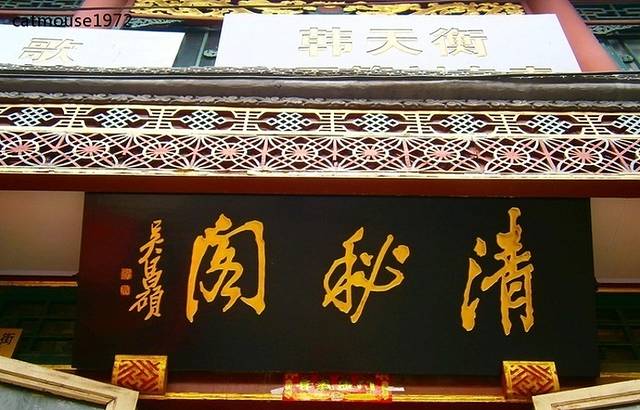 catmouse1972
歌
韩天衡
清秘閣
吳昌碩
街